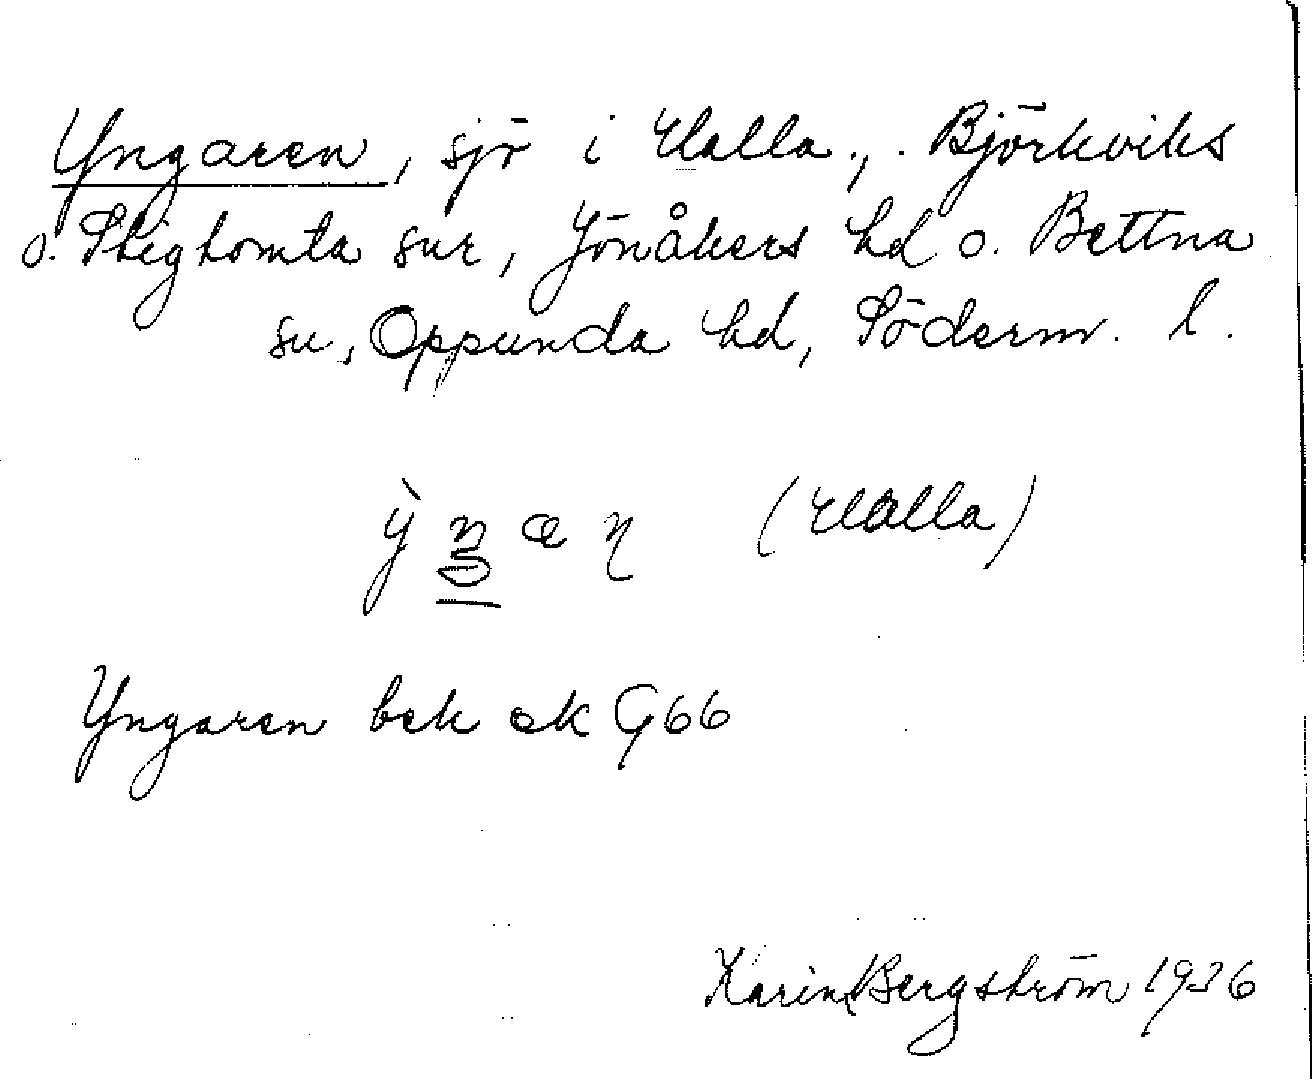 Yngaren, sjö i Halla., Björkviks
o. Stigtomta snr, Jönåkers hd o. Bettna
sn, Oppunda hd, Söderm. l.
(Halla)
Yngaren bek ek G66
Karin Bergström 1936